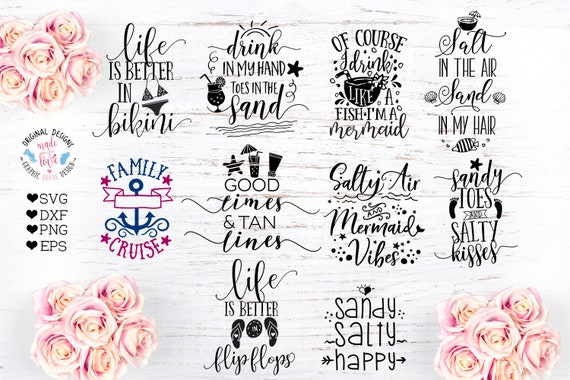 life
IS BETTER
IN
bikini
drink
IN MY HAND
TOES IN THE
sand
OF COURSE
I drink
LIKE A
FISH I'M A
mermaid
Salt
IN THE AIR
Sand
IN MY HAIR
ORIGINAL DESIGNS
made
with
love
GRAPHIC DESIGN
SVG
DXF
PNG
EPS
FAMILY
CRUISE
GOOD
times
& TAN
lines
Salty Air
AND
Mermaid
Vibes
sandy
TOES
AND
SALTY
kisses
life
IS BETTER
IN
flipflops
sandy
salty
happy